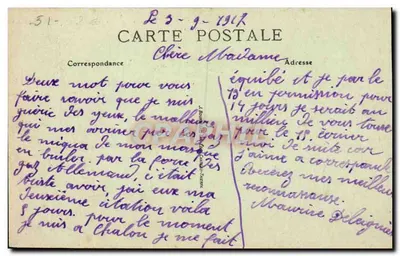 51-
Le 5-9-1917
CARTE POSTALE
Correspondance
Adresse
Chère Madame
Deux mot pour vous
faire savoir que je suis
guérie des yeux le malheur
qui mes arrivé par les gaz
le mica de mon masque
en bulor par la force des
gaz Allemand, c'était
triste avoir, jai eux ma
deuxième citation voila
5 jours. pour le moment
je suis a Chalon je me fait
équibé et je par le
13 en permission pour
14 jours je serait au
milieu de vous tous
pour le 15. écriver
moi de suite car
j'aime a correspondre
Recevez mes meilleur
reconnaissance.
Maurice